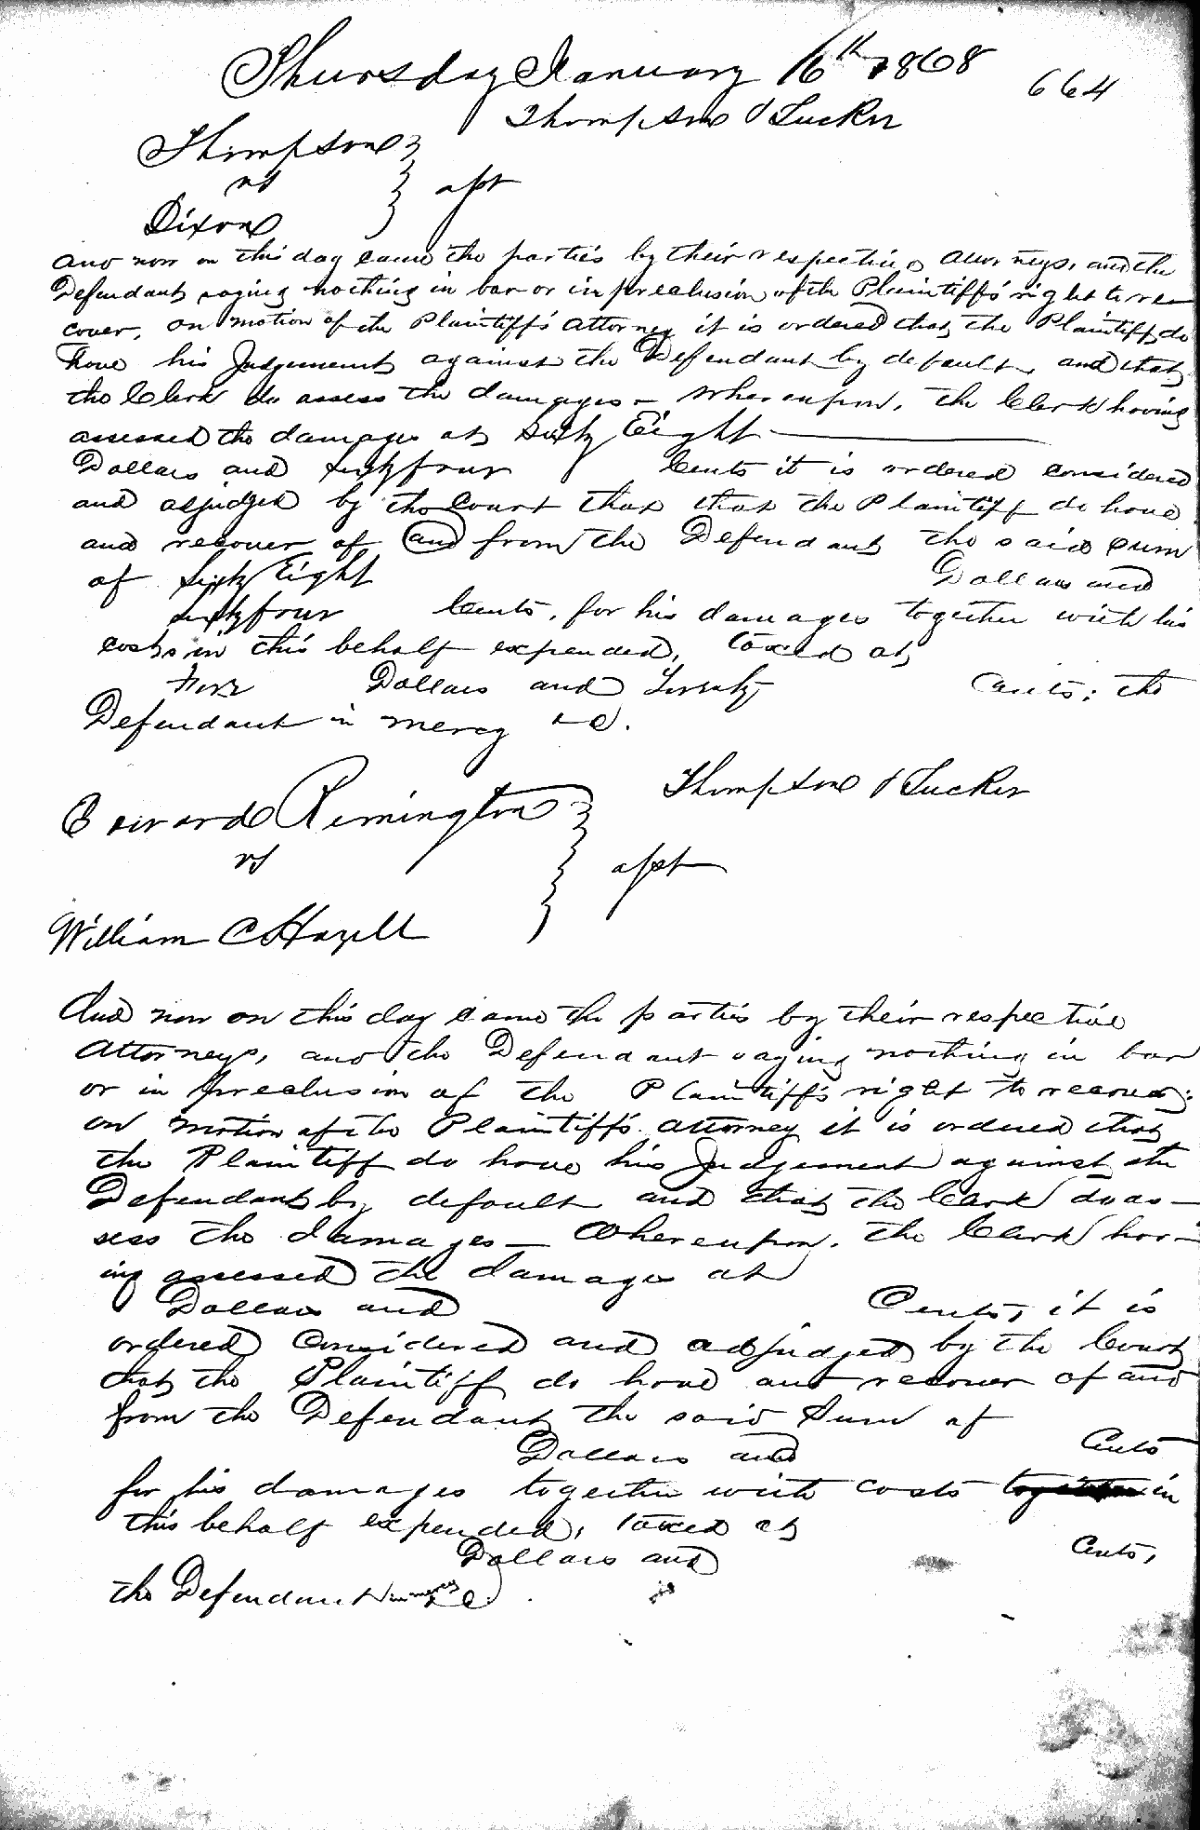 Thursday January 16th 1868
664
Thompson & Tucker
Thompson
vs
Dixon
apt
And now on this day came the parties by their respective Attorneys, and the
Defendant saying nothing in bar or in preclusion of the Plaintiff's right to re
cover, on motion of the Plaintiff's Attorney it is ordered that the Plaintiff do
have his Judgement against the Defendant by default, and that
the Clerk do assess the damages – Whereupon, the Clerk having
assessed the damages at Sixty Eight
Dollars and Sixty four Cents it is ordered considered
and adjudged by the Court that that the Plaintiff do have
and recover of and from the Defendant the said sum
of Sixty Eight Dollars and
Sixty four Cents, for his damages together with his
costs in this behalf expended, taxed at
Dollars and Twenty Cents; the
Defendant in mercy &c.
Thompson & Tucker
Edward Remington
vs
William C Hazell
apt
And now on this day came the parties by their respective
Attorneys, and the Defendant saying nothing in bar
or in preclusion of the Plaintiff's right to recover;
on motion of the Plaintiff's attorney it is ordered that
the Plaintiff do have his Judgement against the
Defendant by default and that the Clerk do as–
sess the damages – Whereupon, the Clerk hav–
ing assessed the damages at
Dollars and Cents, it is
ordered considered and adjudged by the Court
that the Plaintiff do have and recover of and
from the Defendant the said Sum of
Dollars and Cents
for his damages together with costs in
this behalf expended, taxed at
Dollars and Cents,
the Defendant in mercy &c.